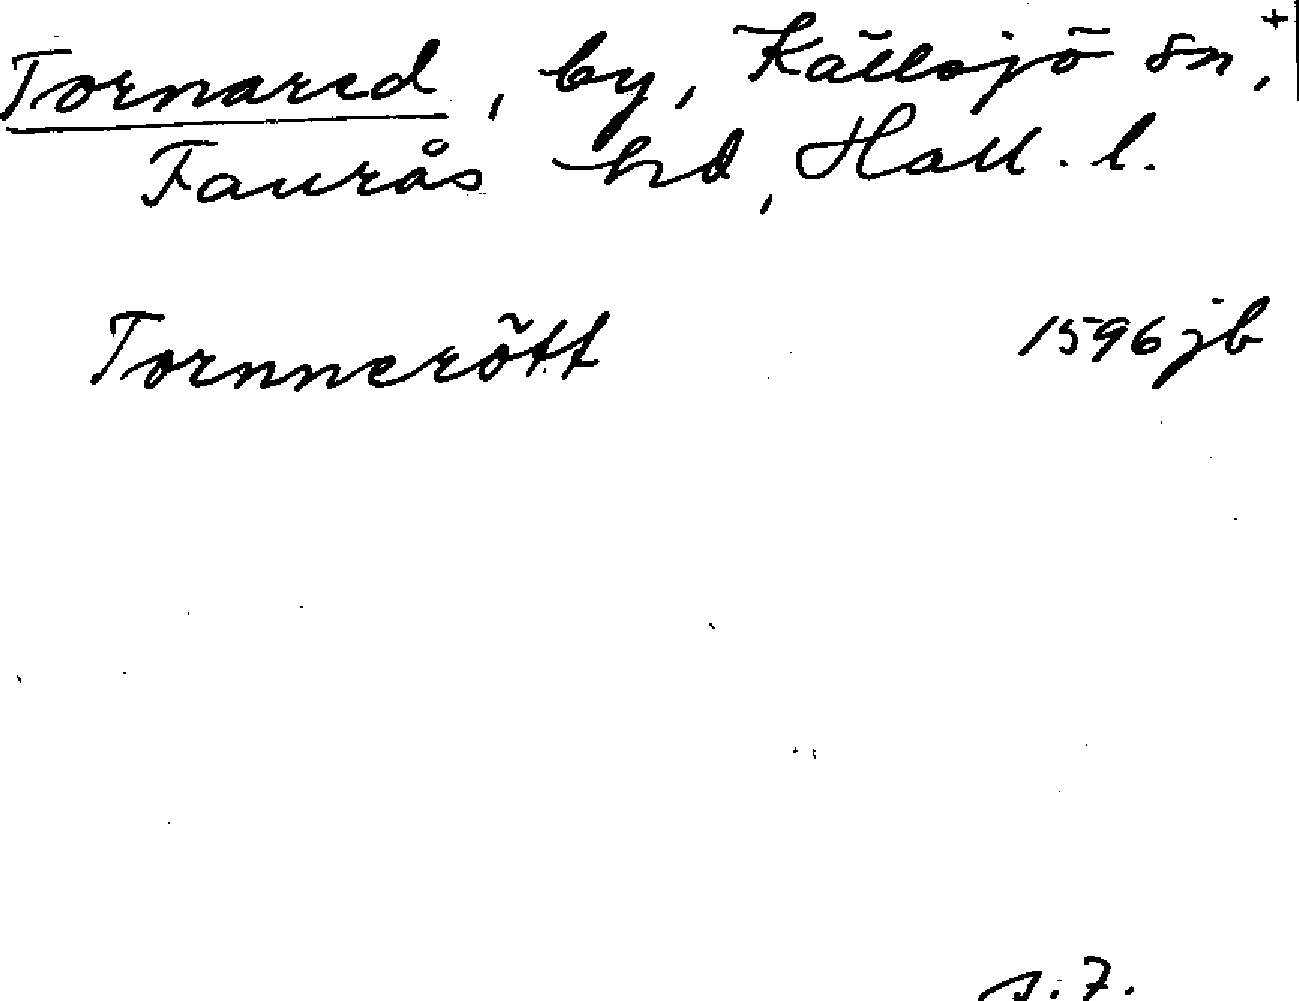 Tornared, by, Källsjö sn, +
Faurås hd, Hall. l.
Tornnerött 1596 jb
s. 7.